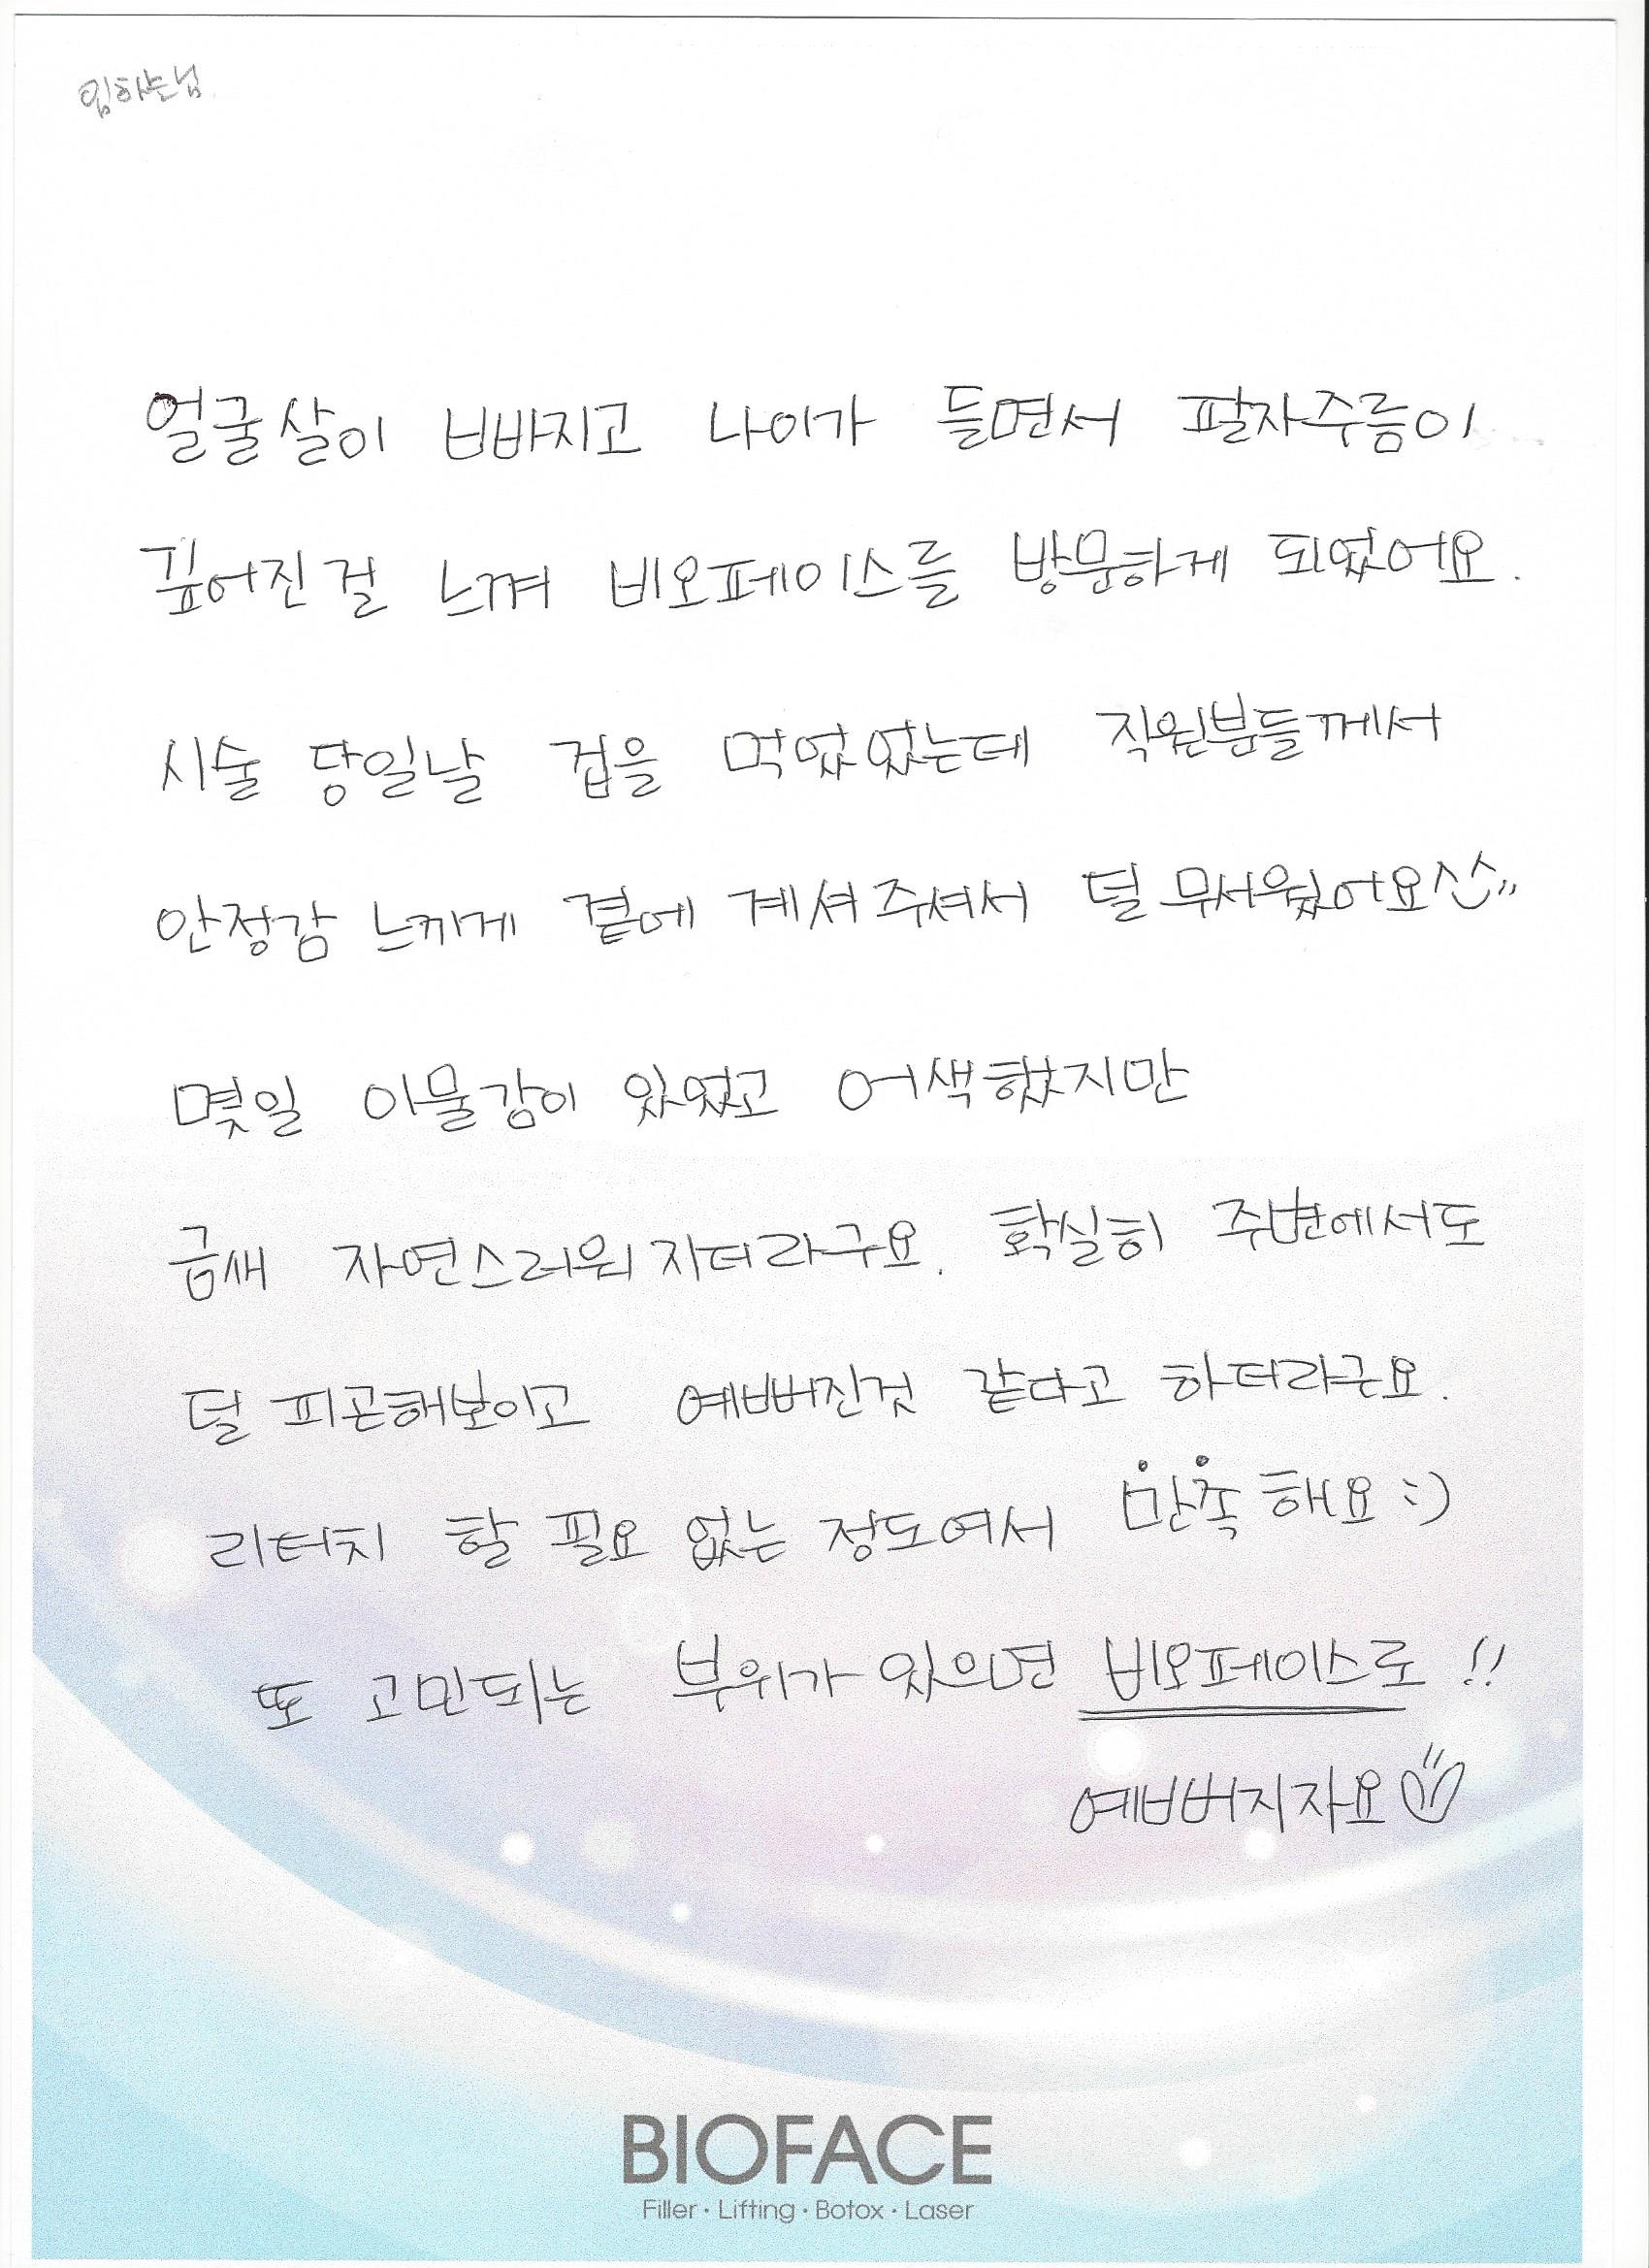 얼굴살이 빠지고 나이가 들면서 팔자주름이
깊어진걸 느껴 비오페이스를 방문하게 되었어요.
시술 당일날 겁을 먹었었는데 직원분들께서
안정감 느끼게 곁에 계셔주셔서 덜 무서웠어요^^;;
몇일 이물감이 있었고 어색했지만
금새 자연스러워지더라구요. 확실히 주변에서도
덜 피곤해보이고 예뻐진것 같다고 하더라구요.
리터치 할 필요 없는 정도여서 만족해요 :)
또 고민되는 부위가 있으면 비오페이스로!!
예뻐지자요
BIOFACE
Filler · Lifting · Botox · Laser